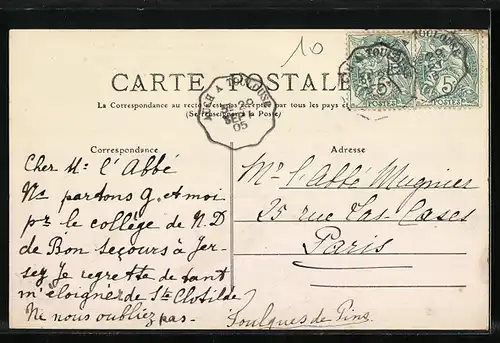 10
CARTE POSTALE
La Correspondance au recto n'est pas acceptée par tous les pays
(Se renseigner à la Poste)
AUCH A TOULOUSE
29
SEPT
05
5 POSTES 5 POSTES
Correspondance
Cher Mr l'Abbé
Ns partons G. et moi
pr le collège de N.D
de Bon Secours à Jer-
sey Je regrette de tant
m'éloigner de Ste Clotilde
Ne nous oubliez pas-
Foulques de Pins
Adresse
Mr l'Abbé Mugnier
25 rue Las Cases
Paris